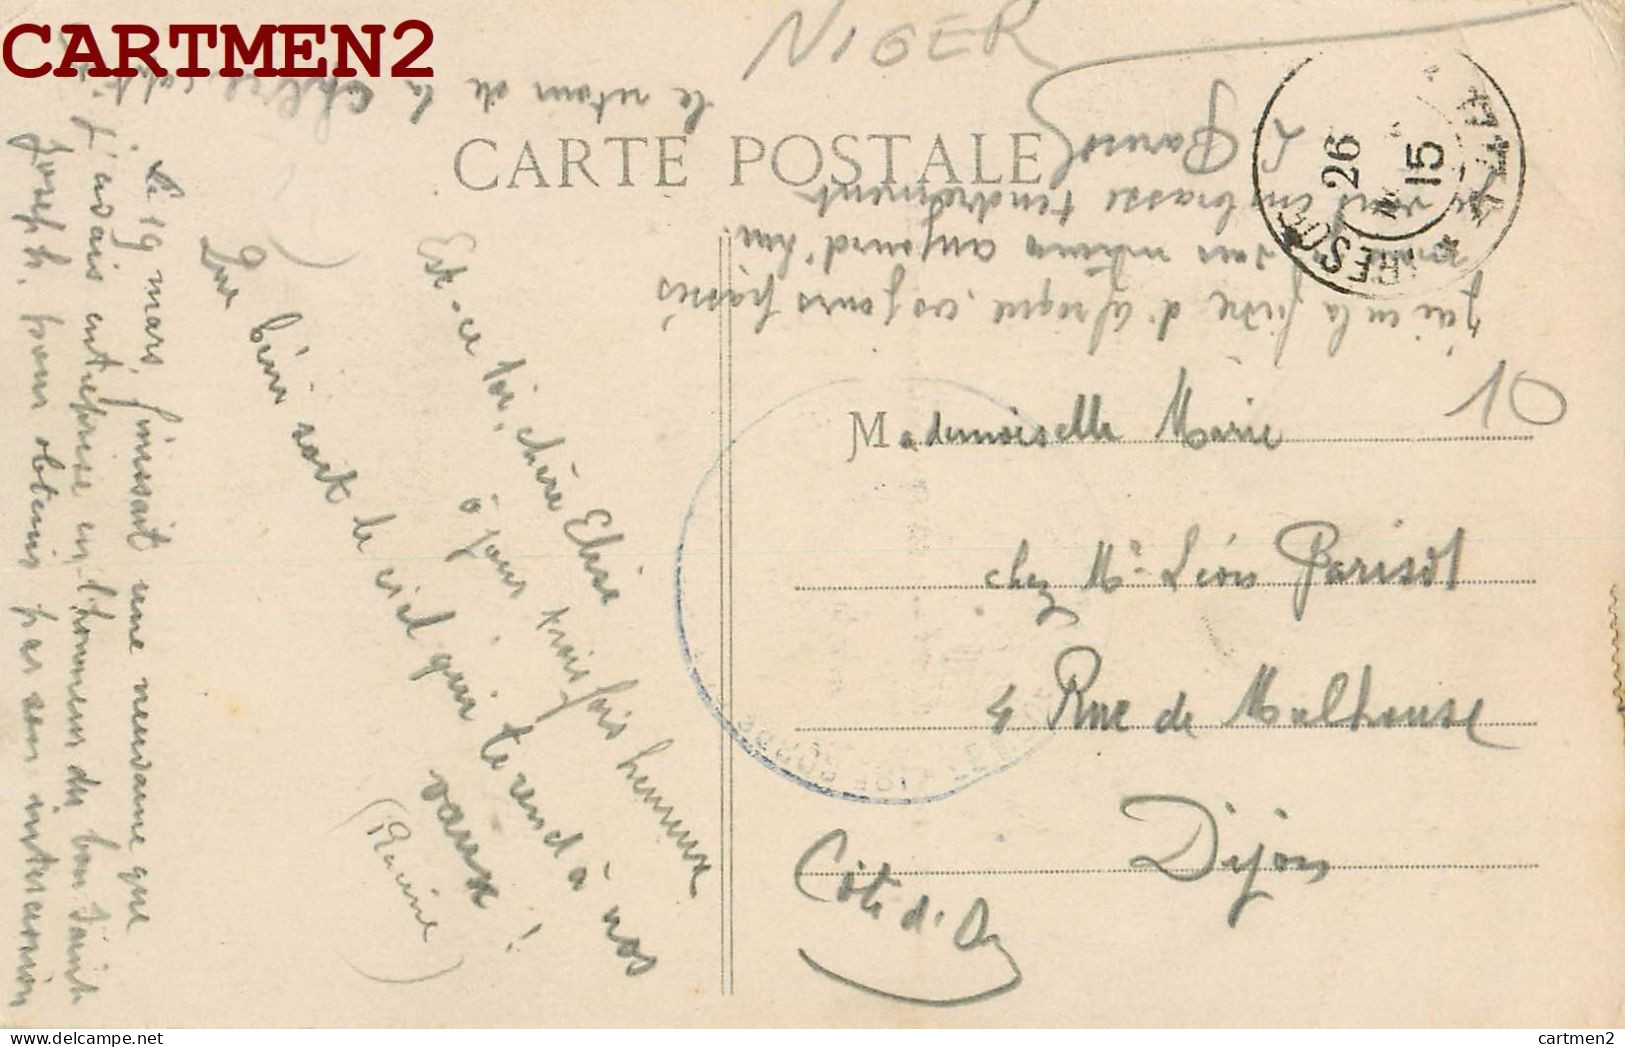 CARTMEN2
NIGER
CARTE POSTALE
26
15
Le 19 mars, finissait une neuvaine que
j'avais entreprise en l'honneur du bon Saint
Joseph. pour obtenir par son intercession
le retour de la
Est-ce toi, chère Elise
ô jour trois fois heureux
Que béni soit le ciel qui te rend à nos
vœux !
(Racine)
J'ai eu la fièvre d'Afrique ces jours passés
aujourd'hui
Je vous embrasse tendrement
L Parisot
10
Mademoiselle Marie
chez Mr Léon Parisot
4 Rue de Mulhouse
Dijon
Côte d'Or
cartmen2